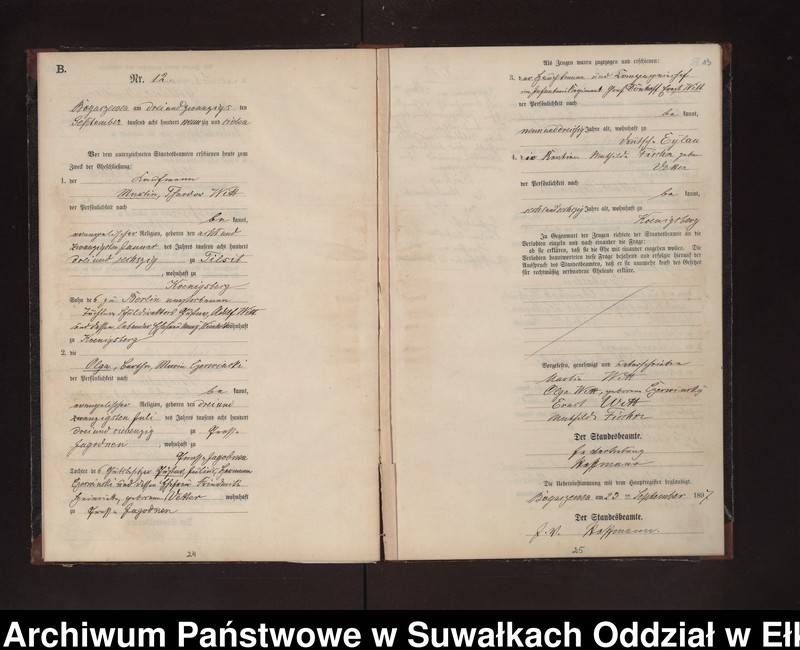 B.
Nr. 12
am dreiundzwanzigsten
September tausend acht hundert neunzig und sieben
Vor dem unterzeichneten Standesbeamten erschienen heute zum
Zweck der Eheschließung:
1. der Kaufmann
Martin, Theodor Witt
der Persönlichkeit nach
be kannt,
evangelischer Religion, geboren den acht und
zwanzigsten Januar des Jahres tausend acht hundert
drei und sechszig zu Tilsit
, wohnhaft zu
Koenigsberg
Sohn des zu Berlin verstorbenen
Adolf Witt
und dessen Ehefrau wohnhaft
zu Koenigsberg
2. die
Olga, Bertha, Maria Czerwinski
der Persönlichkeit nach
be kannt,
evangelischer Religion, geboren den drei und
zwanzigsten Juli des Jahres tausend acht hundert
drei und siebenzig zu Gross
Jagodnen , wohnhaft zu
Gross Jagodnen
Tochter des Gutsbesitzer Gustav, Julius, Hermann
Czerwinski und dessen Ehefrau Friederike
Henriette, geborene Vetter wohnhaft
zu Gross Jagodnen
24
Als Zeugen waren zugezogen und erschienen:
3. der Hauptmann und Kompagniechef
im Infanterie Regiment Graf Dönhoff Ernst Witt
der Persönlichkeit nach
be kannt,
neununddreißig Jahre alt, wohnhaft zu
Deutsch Eylau
4. die Mathilde Fischer geborene
Vetter
der Persönlichkeit nach
be kannt,
sechsundsechzig Jahre alt, wohnhaft zu
Koenigsberg
In Gegenwart der Zeugen richtete der Standesbeamte an die
Verlobten einzeln und nach einander die Frage:
ob sie erklären, daß sie die Ehe mit einander eingehen wollen. Die
Verlobten beantworteten diese Frage bejahend und erfolgte hierauf der
Ausspruch des Standesbeamten, daß er sie nunmehr kraft des Gesetzes
für rechtmäßig verbundene Eheleute erkläre.
Vorgelesen, genehmigt und unterschrieben
Martin Witt
Olga Witt, geborene Czerwinski
Ernst Witt
Mathilde Fischer
Der Standesbeamte.
In Vertretung
Die Uebereinstimmung mit dem Hauptregister beglaubigt.
am 23 ten September 1897
Der Standesbeamte.
J. V.
25
Archiwum Państwowe w Suwałkach Oddział w Ełk